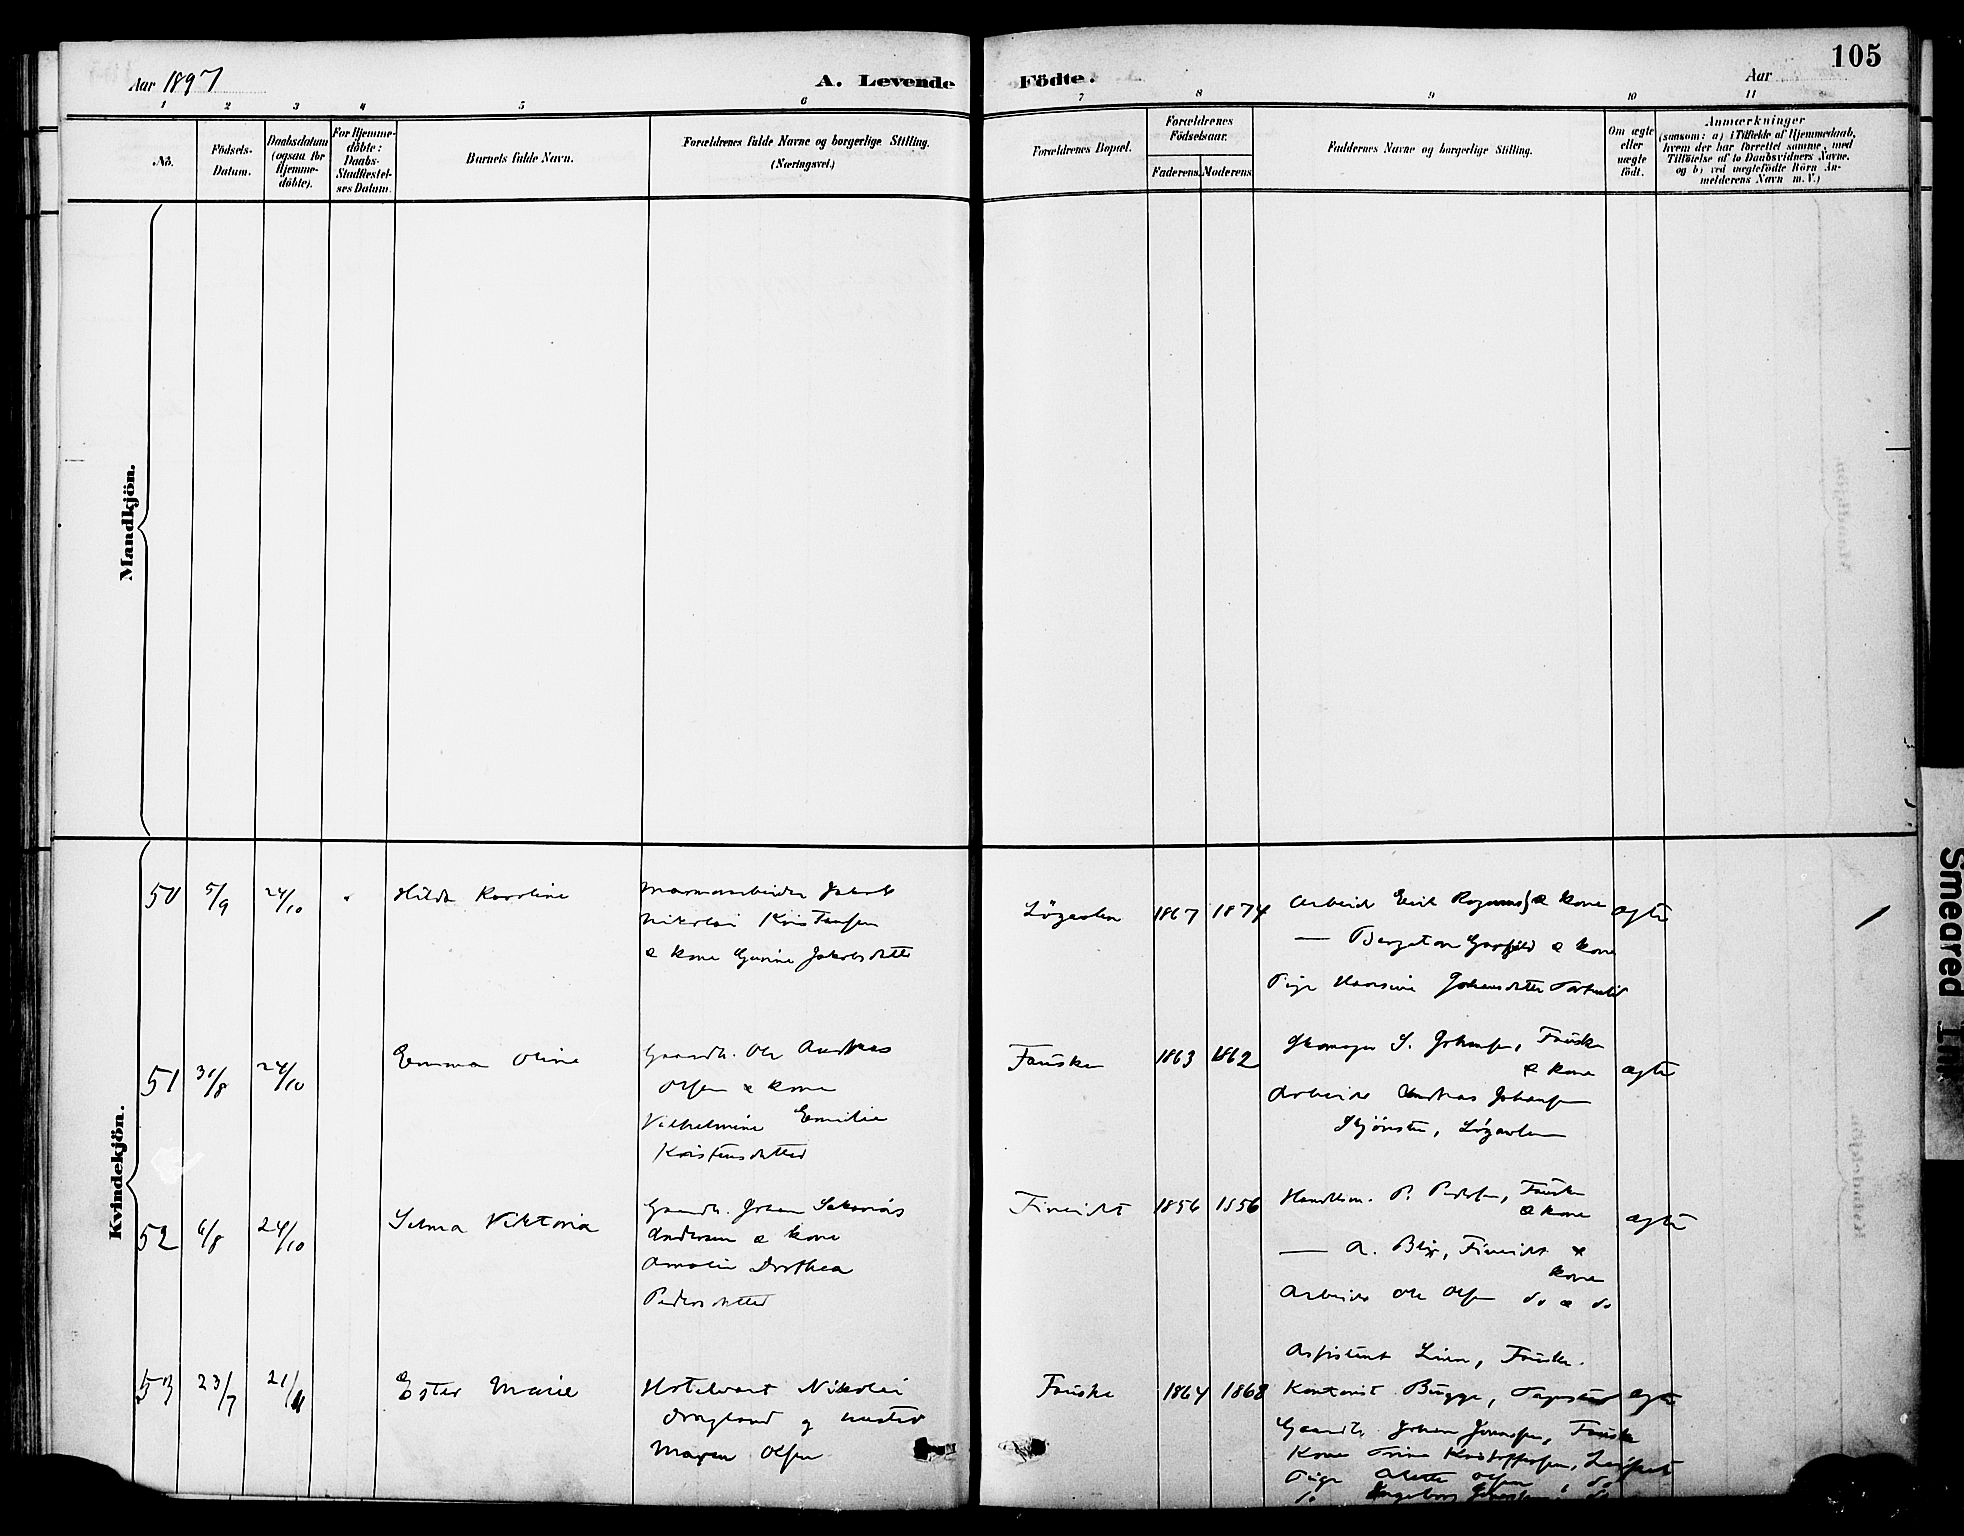 Aar 1897
A. Levende
Födte.
Aar
105
1 2 3 4 5 6 7 8 9 10 11
No.
Födsels-
Datum.
Daabsdatum
(ogsaa for
Hjemme-
döbte).
For Hjemme-
döbte:
Daabs-
Stadfæstel-
ses Datum.
Barnets fulde Navn.
Forældrenes fulde Navne og borgerlige Stilling.
(Næringsvei.)
Forældrenes Bopæl.
Forældrenes
Födselsaar.
Faderens. Moderens.
Faddernes Navne og borgerlige Stilling.
Om ægte
eller
uægte
födt.
Anmærkninger
(saasom: a) i Tilfælde af Hjemmedaab,
hvem der har forrettet samme, med
Tilföielse af to Daabsvidners Navne.
og b) ved uægtefödte Börn An-
melderens Navn m. V.)
Mandkjön.
Kvindekjön.
50 5/9 24/10 Hilda Karoline
Marmorarbeider Jakob
Nikolai Kristensen
& kone Jakobsdatter
Løgavlen 1867 1874
Arbeid. Erik & kone
— & kone
Pige Hansine Johansdatter
ægte
51 31/8 24/10 Emma Oline
Gaardb. Ole Andreas
Olsen & kone
Vilhelmine Emilie
Kristensdatter
Fauske 1863 1862
Skomager S. Johansen, Fauske
& kone
Arbeider Andreas Johansen
Løgavlen
ægte
52 6/8 24/10 Selma Viktoria
Gaardb. Johan Sakarias
Andersen & kone
Amalie Dorthea
Pedersdatter
Fineidet 1856 1856
Handelsm. P. Pedersen, Fauske
& kone
— A. Blix, Fineidet &
kone
Arbeider Ole Olsen do & do
ægte
53 23/7 21/11 Ester Marie
Hotelvært Nikolai
Dragland og hustru
Maren Olsen
Fauske 1864 1868
Assistent Lund, Fauske.
Kontorist Bugge,
Gaardb. Johan Jonassen, Fauske
Kone Trine Kristoffersen,
Pige Olsen, do
do Ingeborg
ægte
Smeared Ink